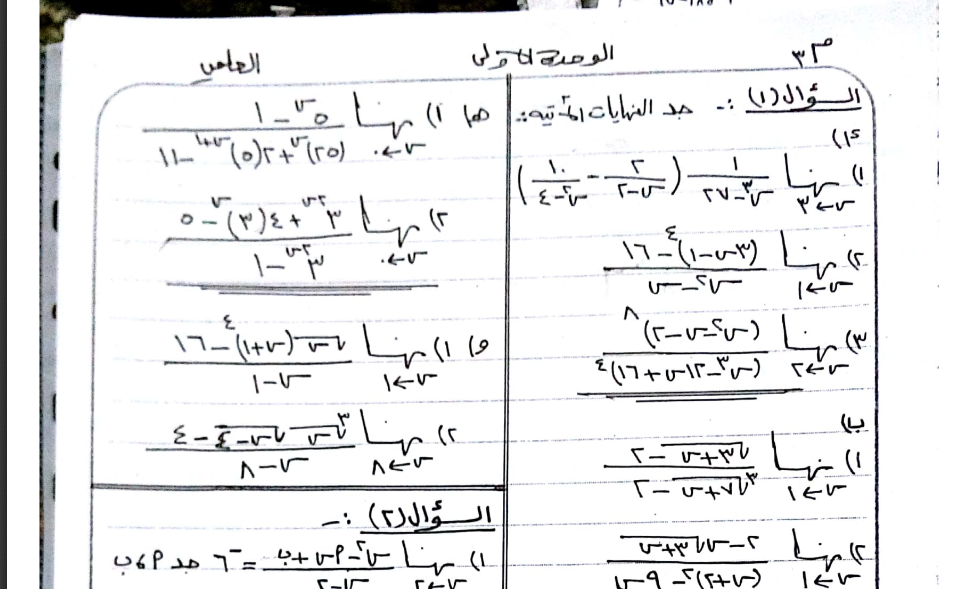 م٣ الوحدة الأولى العلمي
السؤال (١) :- جد النهايات الآتية :
أ)
١) نهــا س←٣ ١/(س٣-٢٧) (٢/(س-٢) - ١٠/(س٢-٤))
٢) نهــا س←١ ((٣س-١)٤-١٦)/(س٢-س)
٣) نهــا س←٢ (س٢-س-٢)٨/(س٣-١٢س+١٦)٤
ب)
١) نهــا س←١ (√(٣+س)-٢)/(٣√(٧+س)-٢)
٢) نهــا س←١ (٢-س√(٣+س))/((س+٢)٢-٩س)
هـ) ١) نهــا س←٠ (٥س-١)/((٢٥)س+٢(٥)س+١-١١)
٢) نهــا س←٠ (٣٢س+٤(٣)س-٥)/(٣٢س-١)
و) ١) نهــا س←١ (√س(س+١)٤-١٦)/(س-١)
٢) نهــا س←٨ (٣√س √(س-٤)-٤)/(س-٨)
السؤال (٢) :-
١) نهــا س←٢ (س٢-أس+ب)/(س-٢) = -٦ جد أ، ب